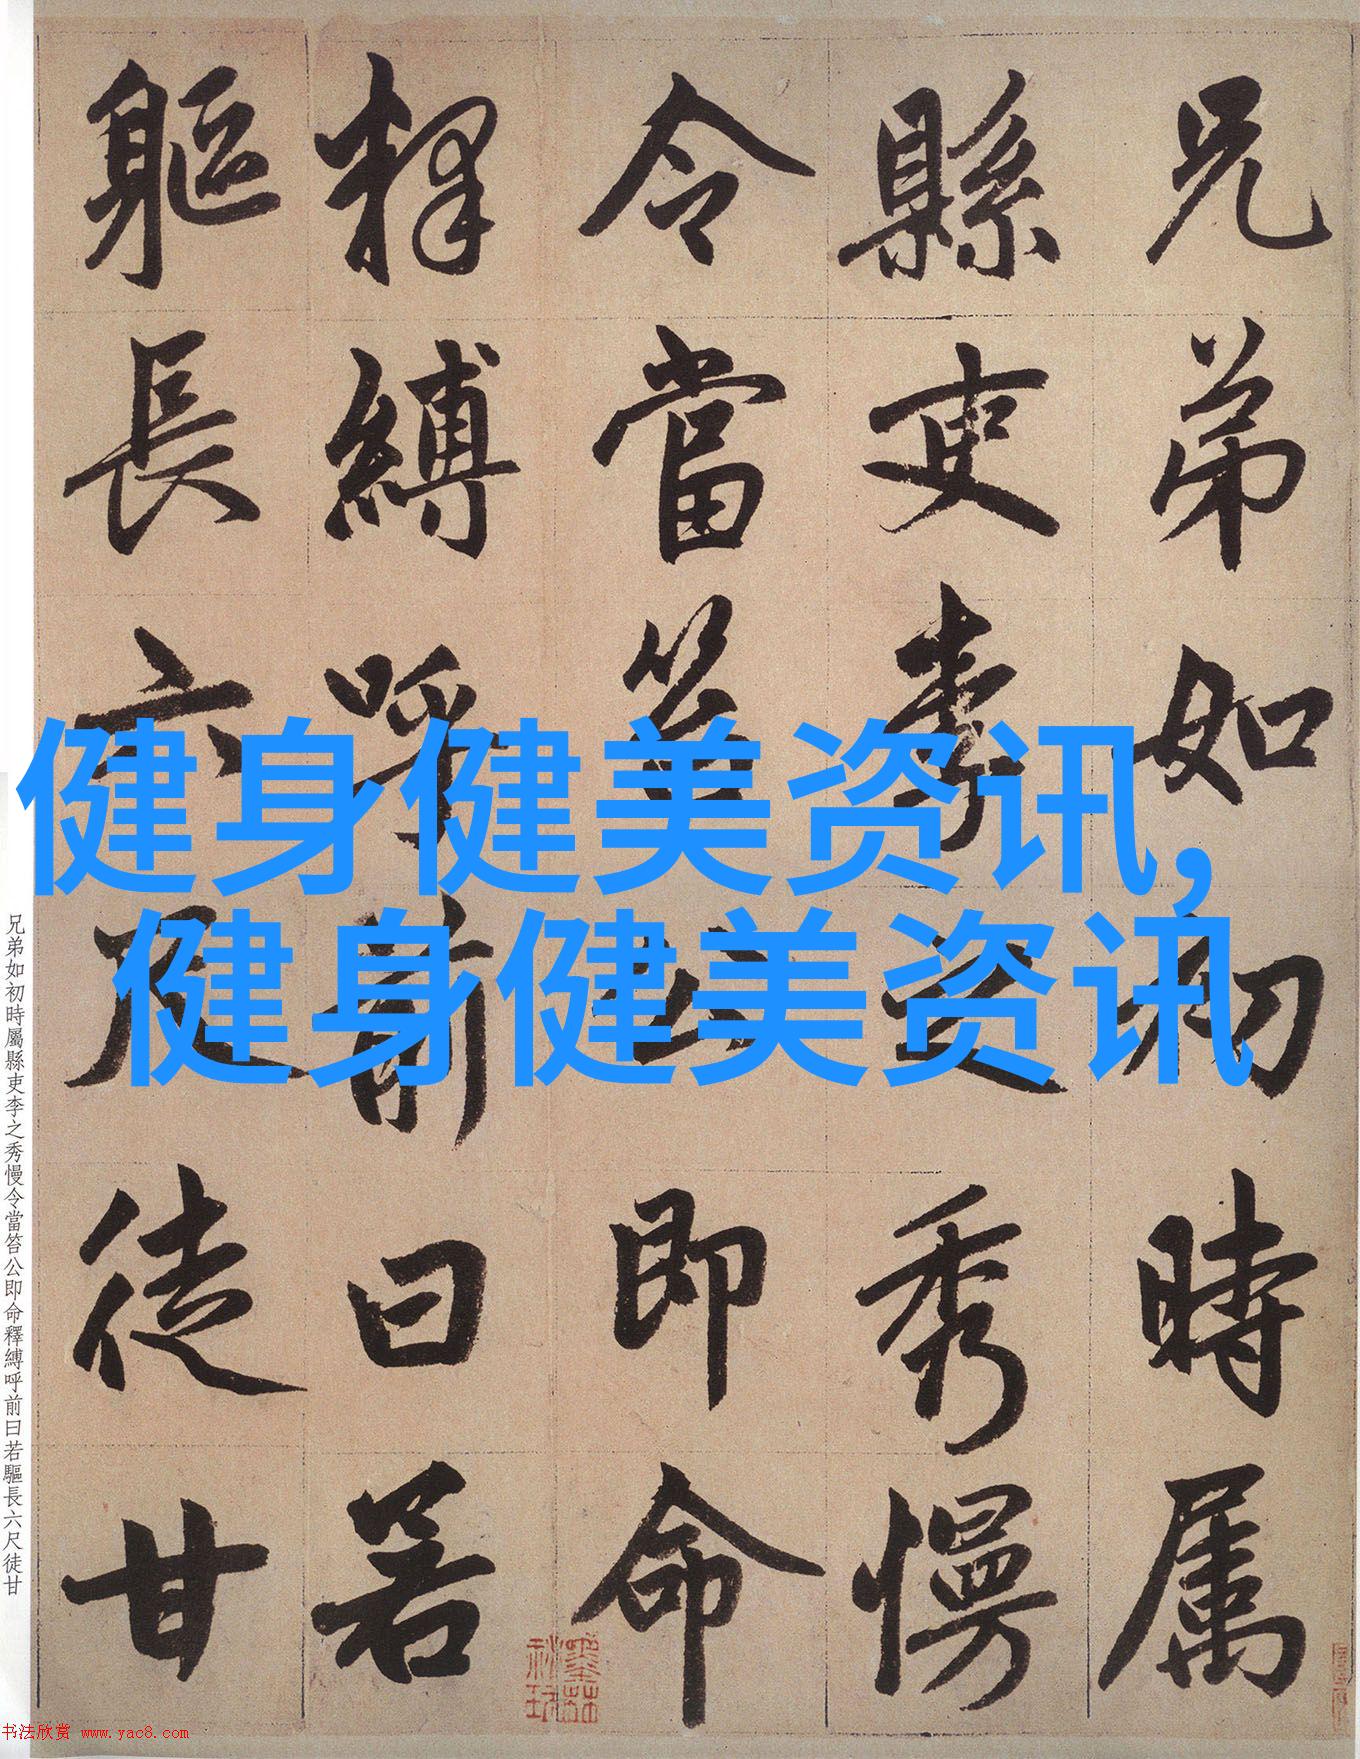 兄弟如初時属
縣吏李之秀慢
令當笞公即命
释縛呼前曰若
軀長六尺徒甘
健身健美资讯,
健身健美资讯
兄弟如初時屬縣吏李之秀慢令當笞公即命釋縛呼前曰若驅長六尺徒甘
书法欣赏 www.yac8.com